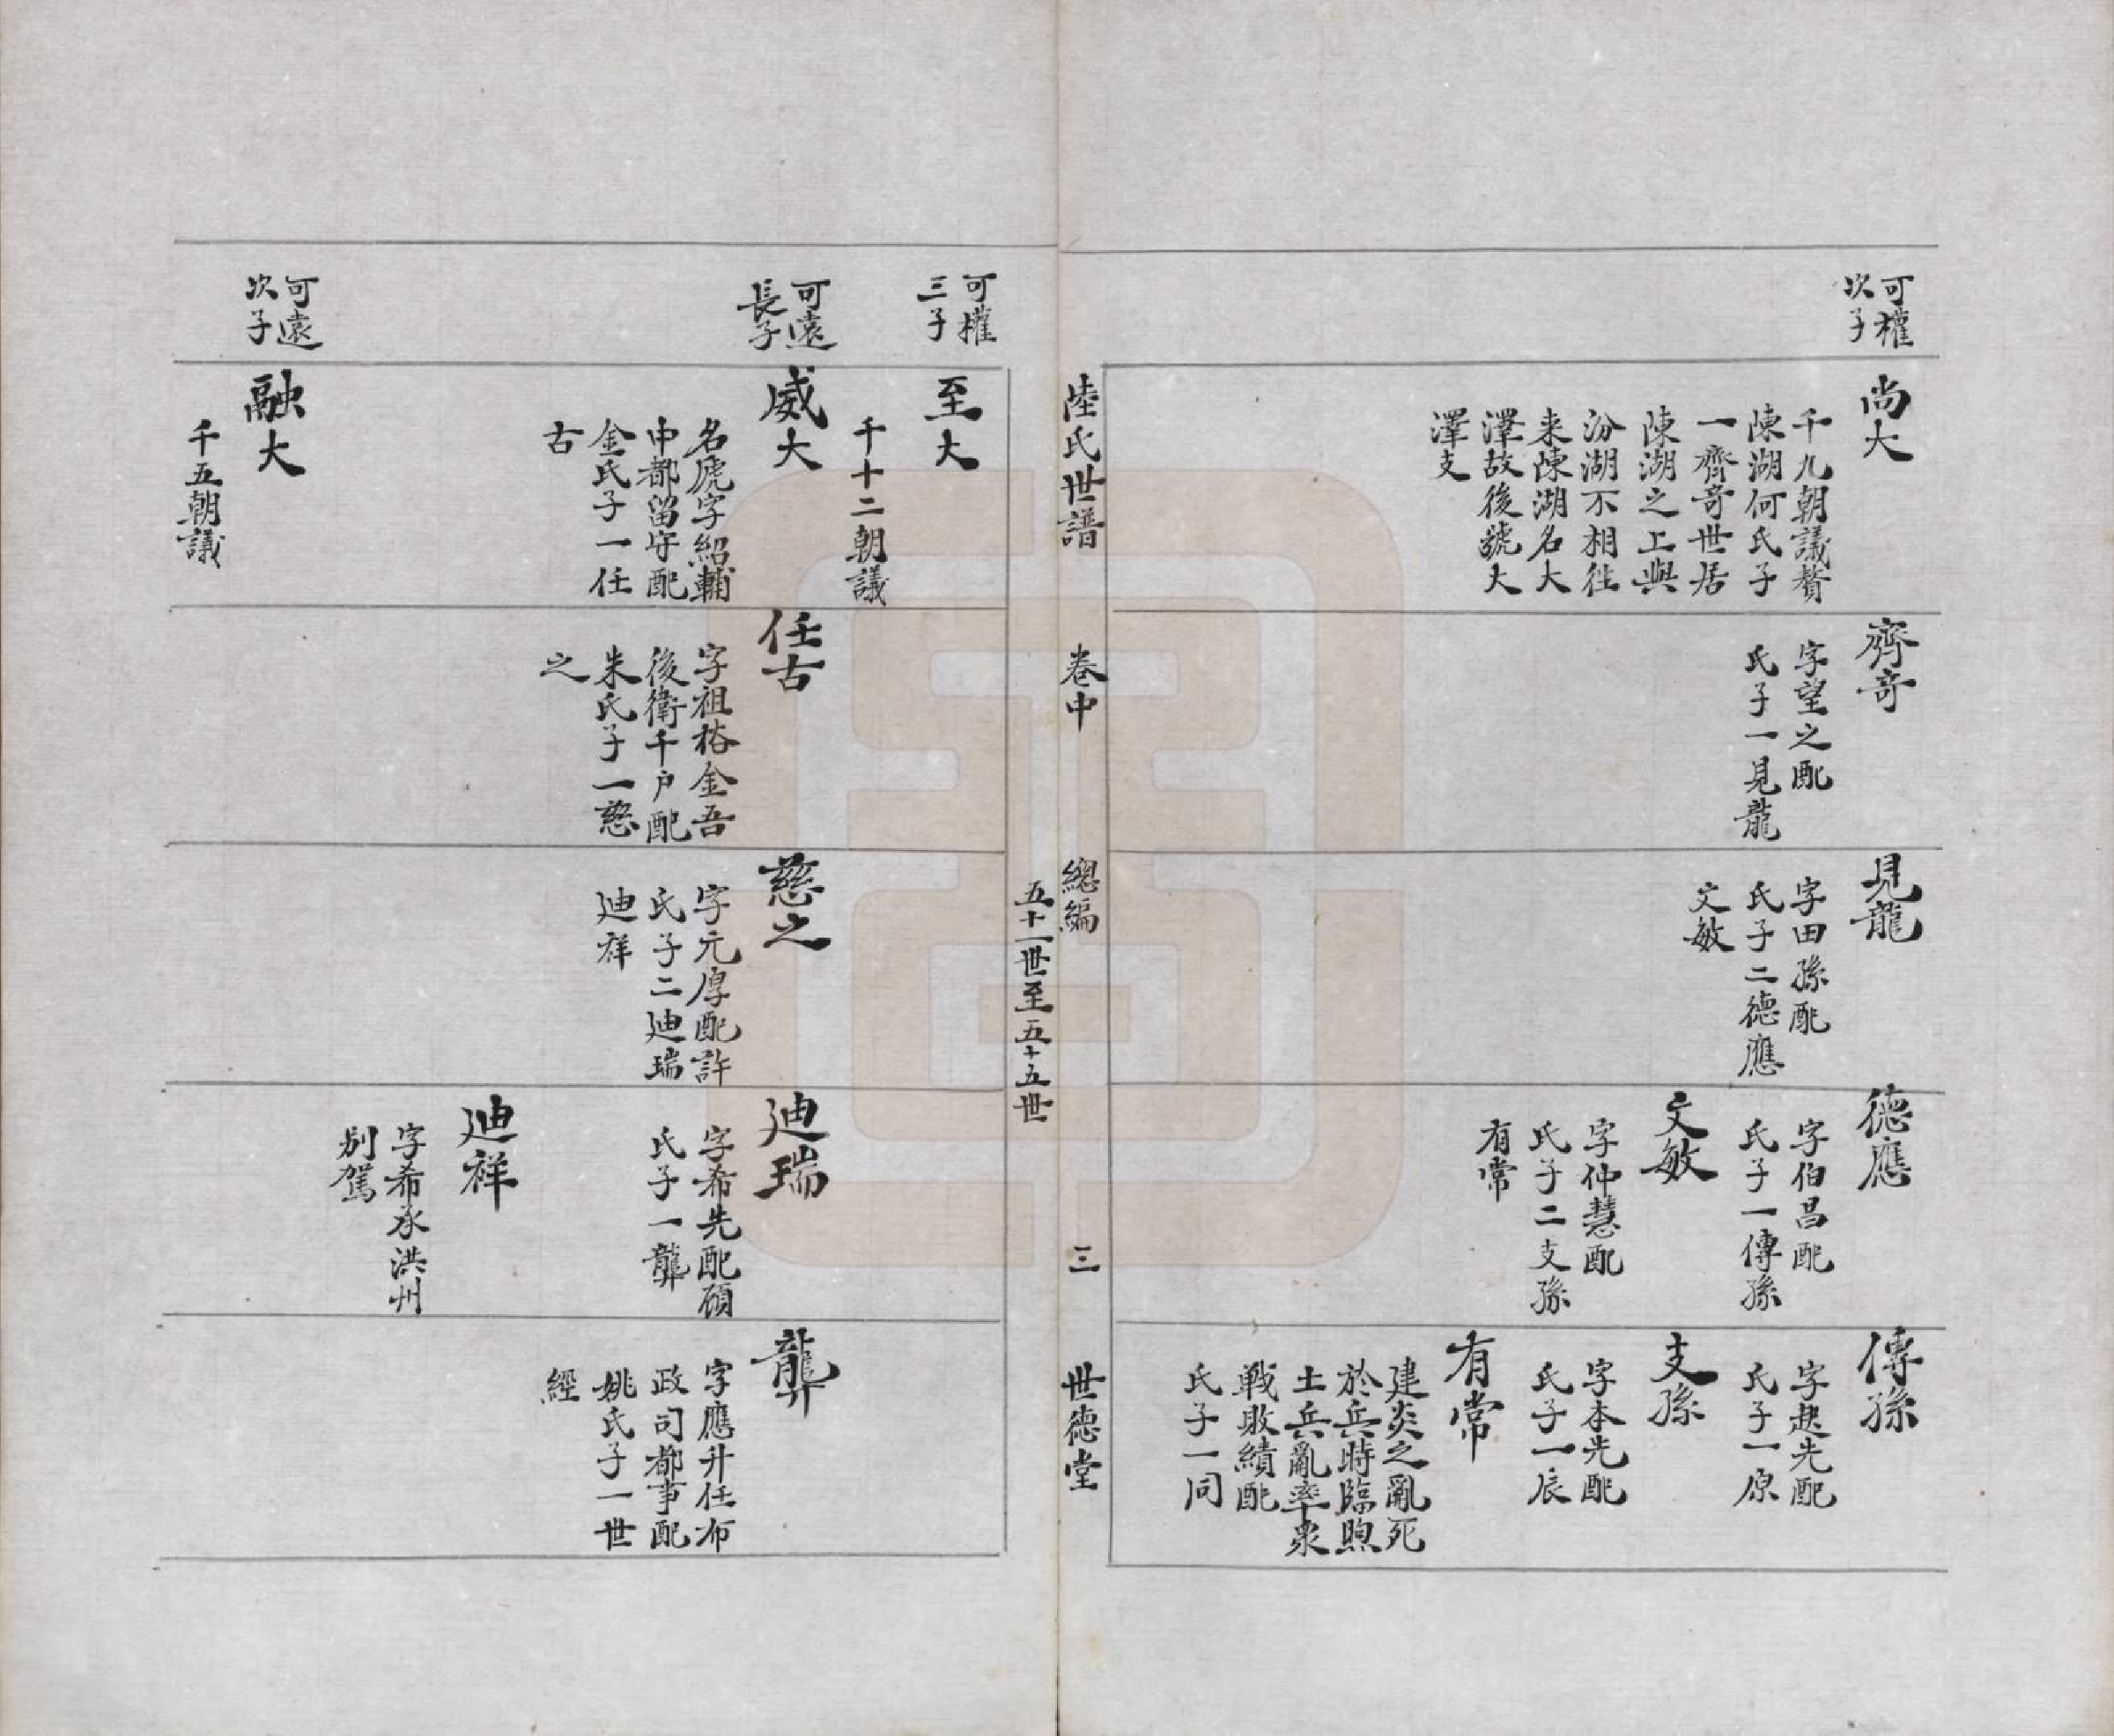 可權
次子
尚大
千九朝議贅
陳湖何氏子
一齊竒世居
陳湖之上與
汾湖不相徃
来陳湖名大
澤故後號大
澤支
齊竒
字望之配
氏子一見龍
見龍
字田孫配
氏子二德應
文敏
德應
字伯昌配
氏子一傳孫
文敏
字仲慧配
氏子二支孫
有常
傳孫
字起先配
氏子一原
支孫
字本先配
氏子一辰
有常
建炎之亂死
於兵時臨煦
土兵亂率衆
戰敗績配
氏子一同
陸氏世譜
卷中
總編
五十一世至五十五世
三
世德堂
可權
三子
至大
千十二朝議
可遠
長子
威大
名虎字紹輔
中都留守配
金氏子一任
古
任古
字祖格金吾
後衛千户配
朱氏子一慈
之
慈之
字元厚配許
氏子二迪瑞
迪祥
迪瑞
字希先配碩
氏子一龏
迪祥
字希承洪州
别駕
龏
字應升任布
政司都事配
姚氏子一世
經
可遠
次子
融大
千五朝議